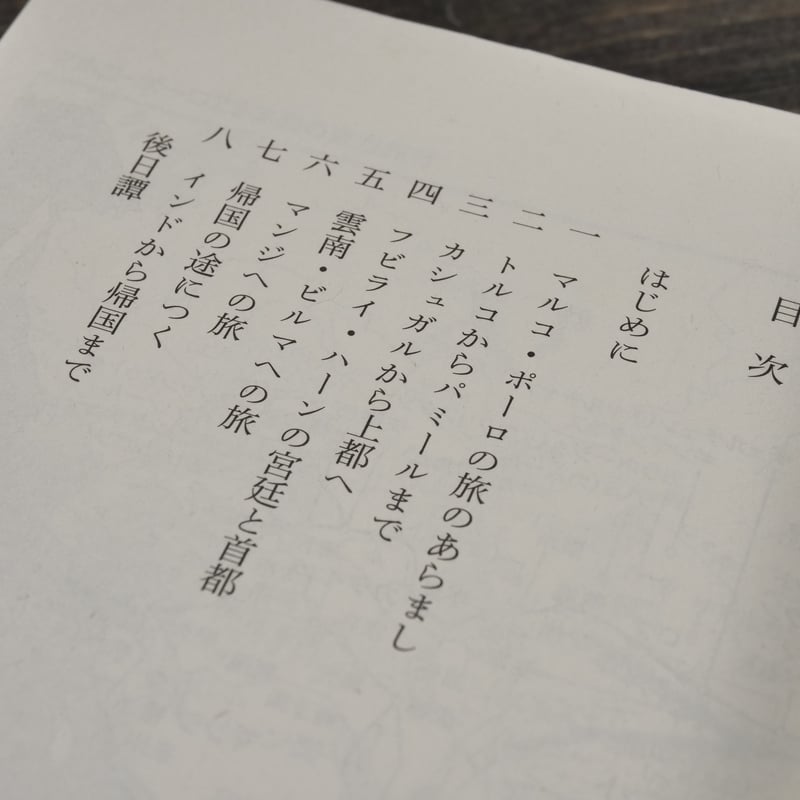 目次
はじめに
一 マルコ・ポーロの旅のあらまし
二 トルコからパミールまで
三 カシュガルから上都へ
四 フビライ・ハーンの宮廷と首都
五 雲南・ビルマへの旅
六 マンジへの旅
七 帰国の途につく
八 インドから帰国まで
後日譚